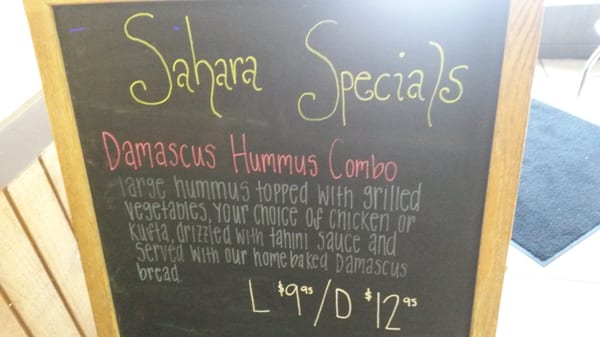 Sahara Specials
Damascus Hummus Combo
large hummus topped with grilled
vegetables, your choice of chicken or
kufta, drizzled with tahini sauce and
served with our homebaked Damascus
bread
L $9.95 / D $12.95